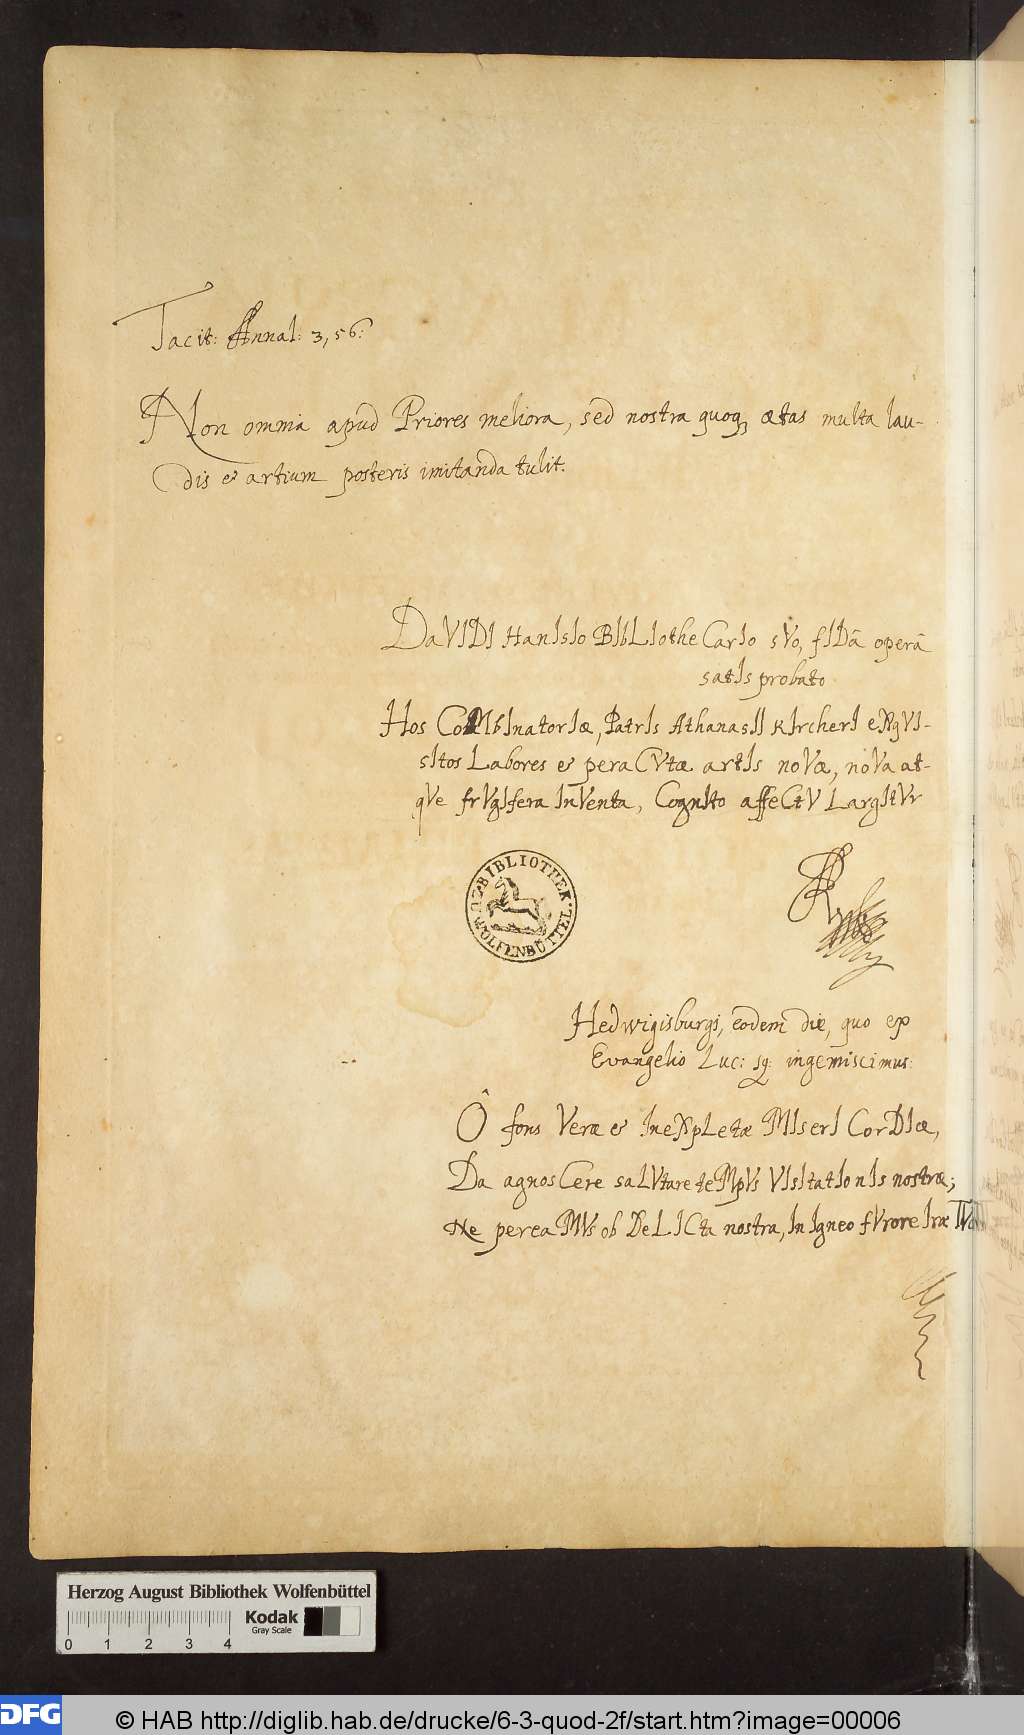 Tacit: Annal: 3, 56:
Non omnia apud Priores meliora, sed nostra quoqꝫ ætas multa lau-
dis & artium posteris imitanda tulit.
DaVIDI HanIsIo BIbLIotheCarIo sVo, fIDâ operâ
satIs probato
Hos CoMbInatorIæ, PatrIs AthanasII KIrcherI eXqVI-
sItos Labores & peraCVtæ artIs noVæ, noVa at-
qVe frVgIfera InVenta, CognIto affeCtV LargItVr
BIBLIOTHEK
WOLFENBÜTTEL
Hedwigisburgi, eodem die, quo ex
Evangelio Luc: 19: ingemiscimus:
Ô fons Veræ & IneXpLetæ MIserICorDIæ,
Da agnosCere saLVtare teMpVs VIsItatIonIs nostræ;
Ne pereaMVs ob DeLICta nostra, In Igneo fVrore Iræ
Herzog August Bibliothek Wolfenbüttel
Kodak
Gray Scale
0 1 2 3 4
DFG
© HAB http://diglib.hab.de/drucke/6-3-quod-2f/start.htm?image=00006